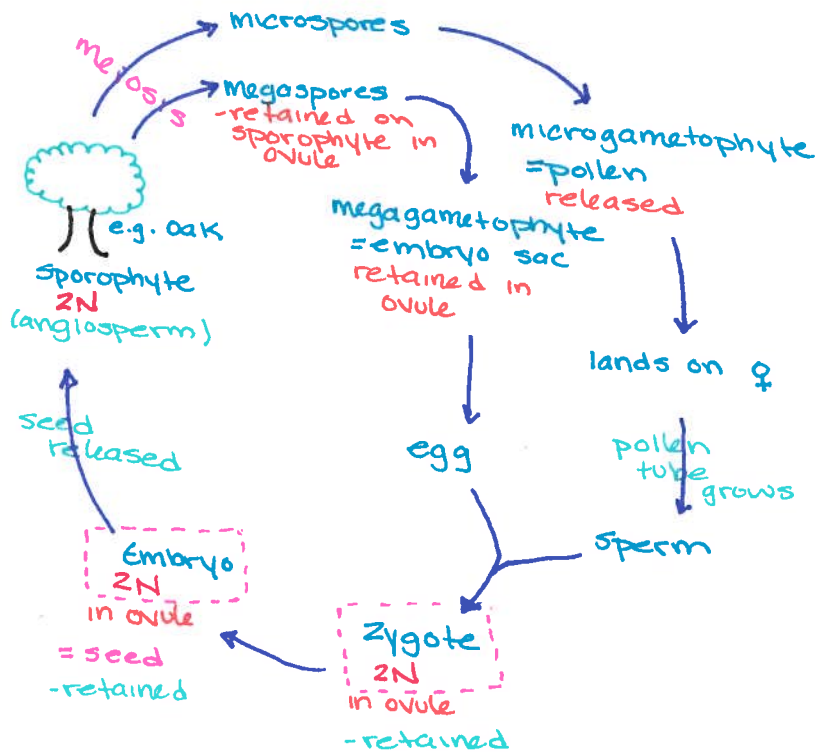 meiosis
microspores
megaspores
-retained on
sporophyte in
ovule
microgametophyte
=pollen
released
megagametophyte
=embryo sac
retained in
ovule
e.g. oak
sporophyte
2N
(angiosperm)
lands on ♀
pollen
tube
grows
egg
sperm
Zygote
2N
in ovule
-retained
Embryo
2N
in ovule
=seed
-retained
seed
released